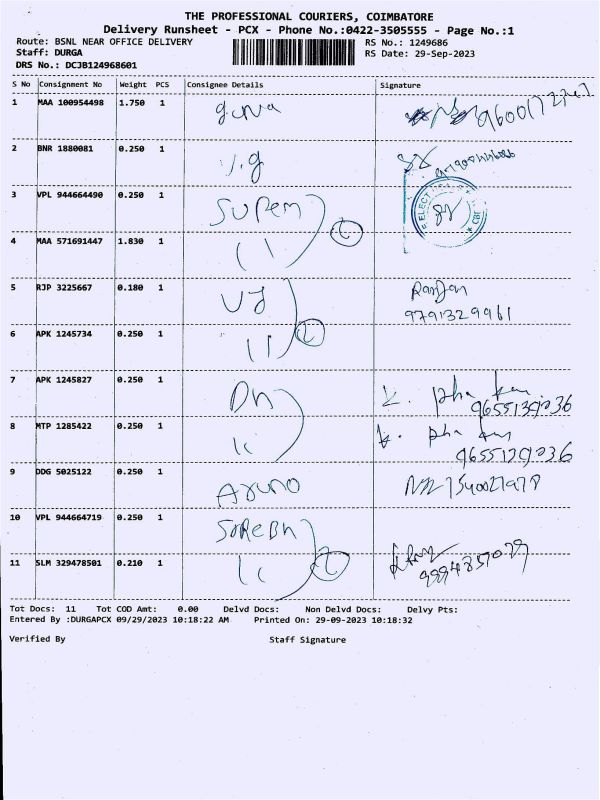 THE PROFESSIONAL COURIERS, COIMBATORE
Delivery Runsheet - PCX - Phone No.:0422-3505555 - Page No.:1
Route: BSNL NEAR OFFICE DELIVERY
RS No.: 1249686
Staff: DURGA
RS Date: 29-Sep-2023
DRS No.: DCJB124968601
S No Consignment No Weight PCS Consignee Details Signature
1 MAA 100954498 1.750 1 guna
2 BNR 1880081 0.250 1 V.g
3 VPL 944664490 0.250 1 SUPem
ELECT
CBE
4 MAA 571691447 1.830 1 11
5 RJP 3225667 0.180 1 UJ Ranjan
9791329961
6 APK 1245734 0.250 1 11
7 APK 1245827 0.250 1 Dn
9655139236
8 MTP 1285422 0.250 1
9655139236
9 DDG 5025122 0.250 1 Aruno
10 VPL 944664719 0.250 1
11 SLM 329478501 0.210 1
Tot Docs: 11 Tot COD Amt: 0.00 Delvd Docs: Non Delvd Docs: Delvy Pts:
Entered By :DURGAPCX 09/29/2023 10:18:22 AM Printed On: 29-09-2023 10:18:32
Verified By Staff Signature